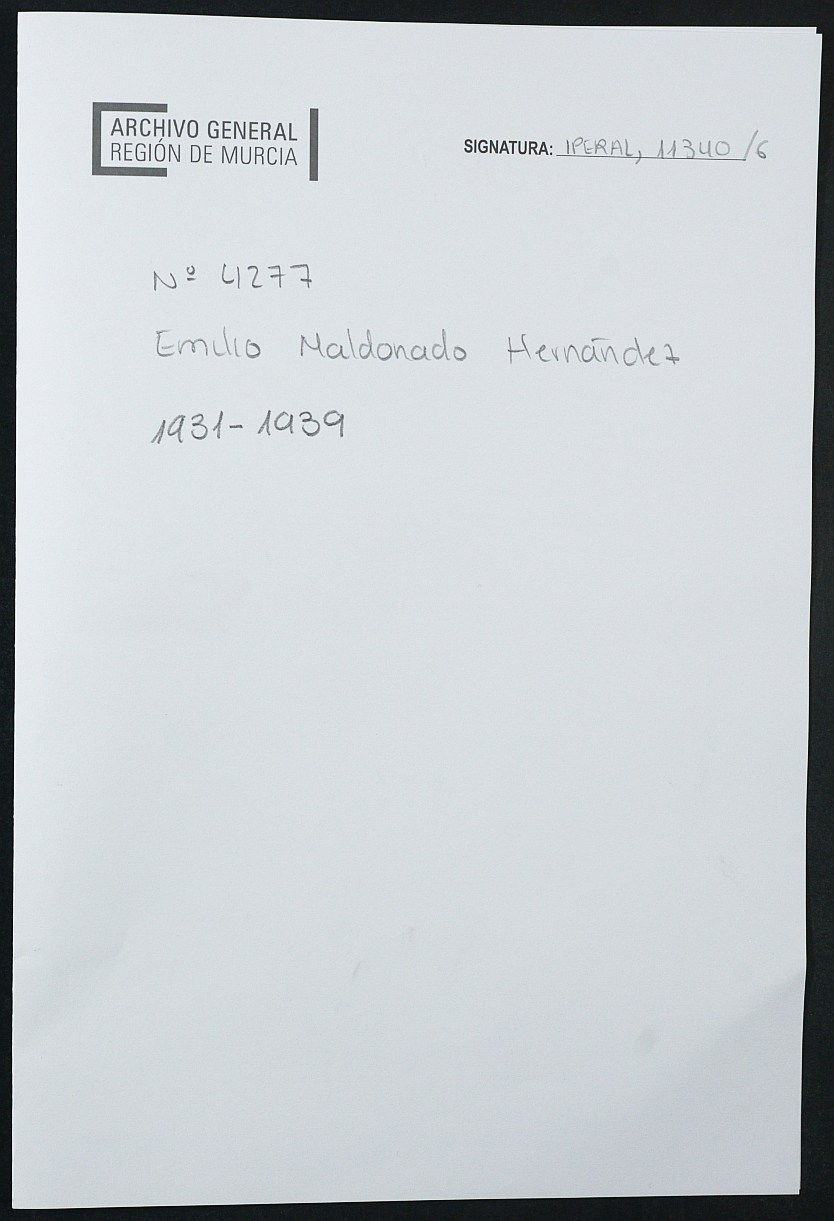 ARCHIVO GENERAL
REGIÓN DE MURCIA
SIGNATURA: IPERAL, 11340/6
Nº 4277
Emilio Maldonado Hernández
1931-1939